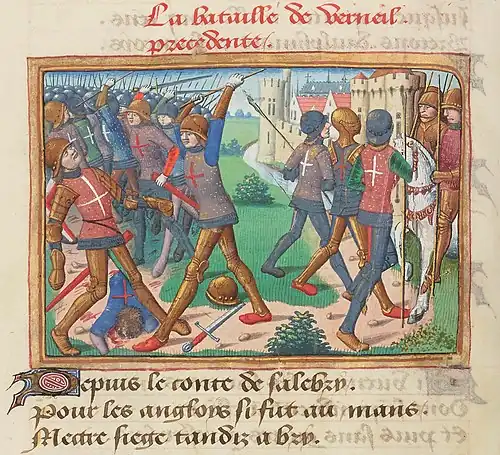 La bataille de Verneil
precedente.
Depuis le conte de salebry.
Pour les angloys si fut au mans.
Mectre siege tandiz a bry.